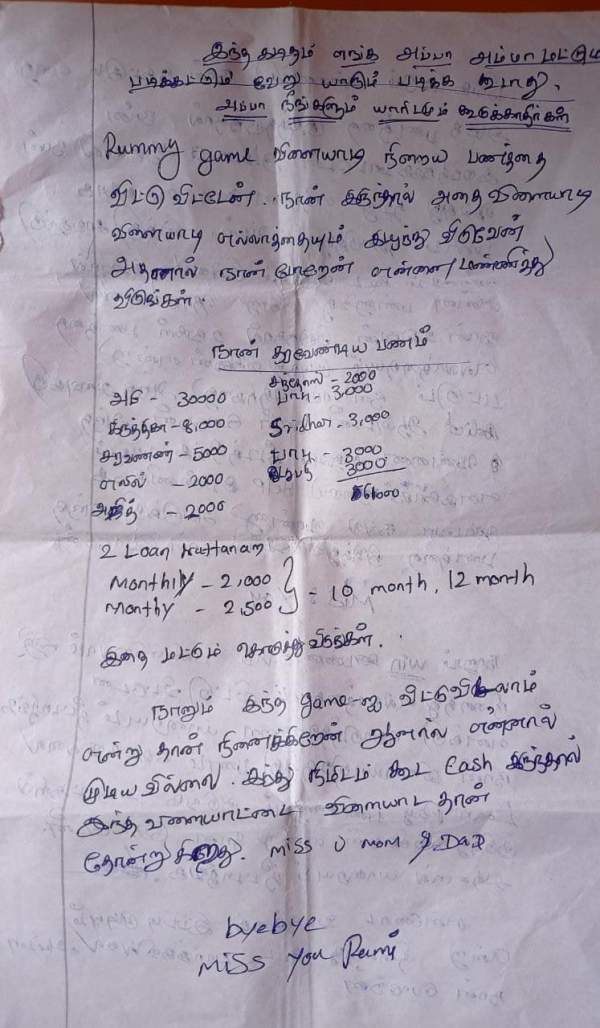 இந்த கடிதம் எங்க அப்பா அம்மா மட்டும்
படிக்கட்டும் வேறு யாரும் படிக்க கூடாது.
அப்பா நீங்களும் யாரிடமும் கொடுக்காதீர்கள்
Rummy game விளையாடி நிறைய பணத்தை
விட்டு விட்டேன். நான் இருந்தால் அதை விளையாடி
விளையாடி எல்லாத்தையும் இழந்து விடுவேன்
அதனால் நான் போறேன் என்னை மன்னித்து
விடுங்கள்.
நான் தரவேண்டிய பணம்
சந்தோஸ் - 2000
அபி - 30000 பாபு - 3,000
- 8,000 Sridhar - 3,000
சரவணன் - 5000 பாபு - 3000
எழில் - 2000 3000
அஜித் - 2000 61000
2 Loan
Monthly - 2,000
Monthy - 2,500 } = 10 month, 12 month
இதை மட்டும் கொடுத்து விடுங்கள்.
நானும் இந்த game-ஐ விட்டுவிடலாம்
என்று தான் நினைக்கிறேன் ஆனால் என்னால்
முடியவில்லை. ஐந்து நிமிடம் கூட Cash இருந்தால்
இந்த விளையாட்டை விளையாட தான்
தோன்றுகிறது. Miss U mom & Dad
byebye
Miss You